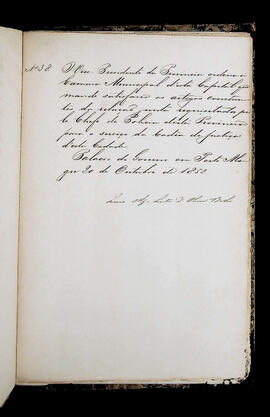 Nº 38. O Vice Presidente da Provincia ordena á
Camara Municipal desta Capital, que
mande satisfazer os artigos constan-
tes da relação junta requisitados pe-
lo Chefe de Policia desta Provincia
para o serviço da Cadêa de Justiça
desta Cidade.
Palacio do Governo em Porto Ale-
gre 20 de Outubro de 1852.
Luis